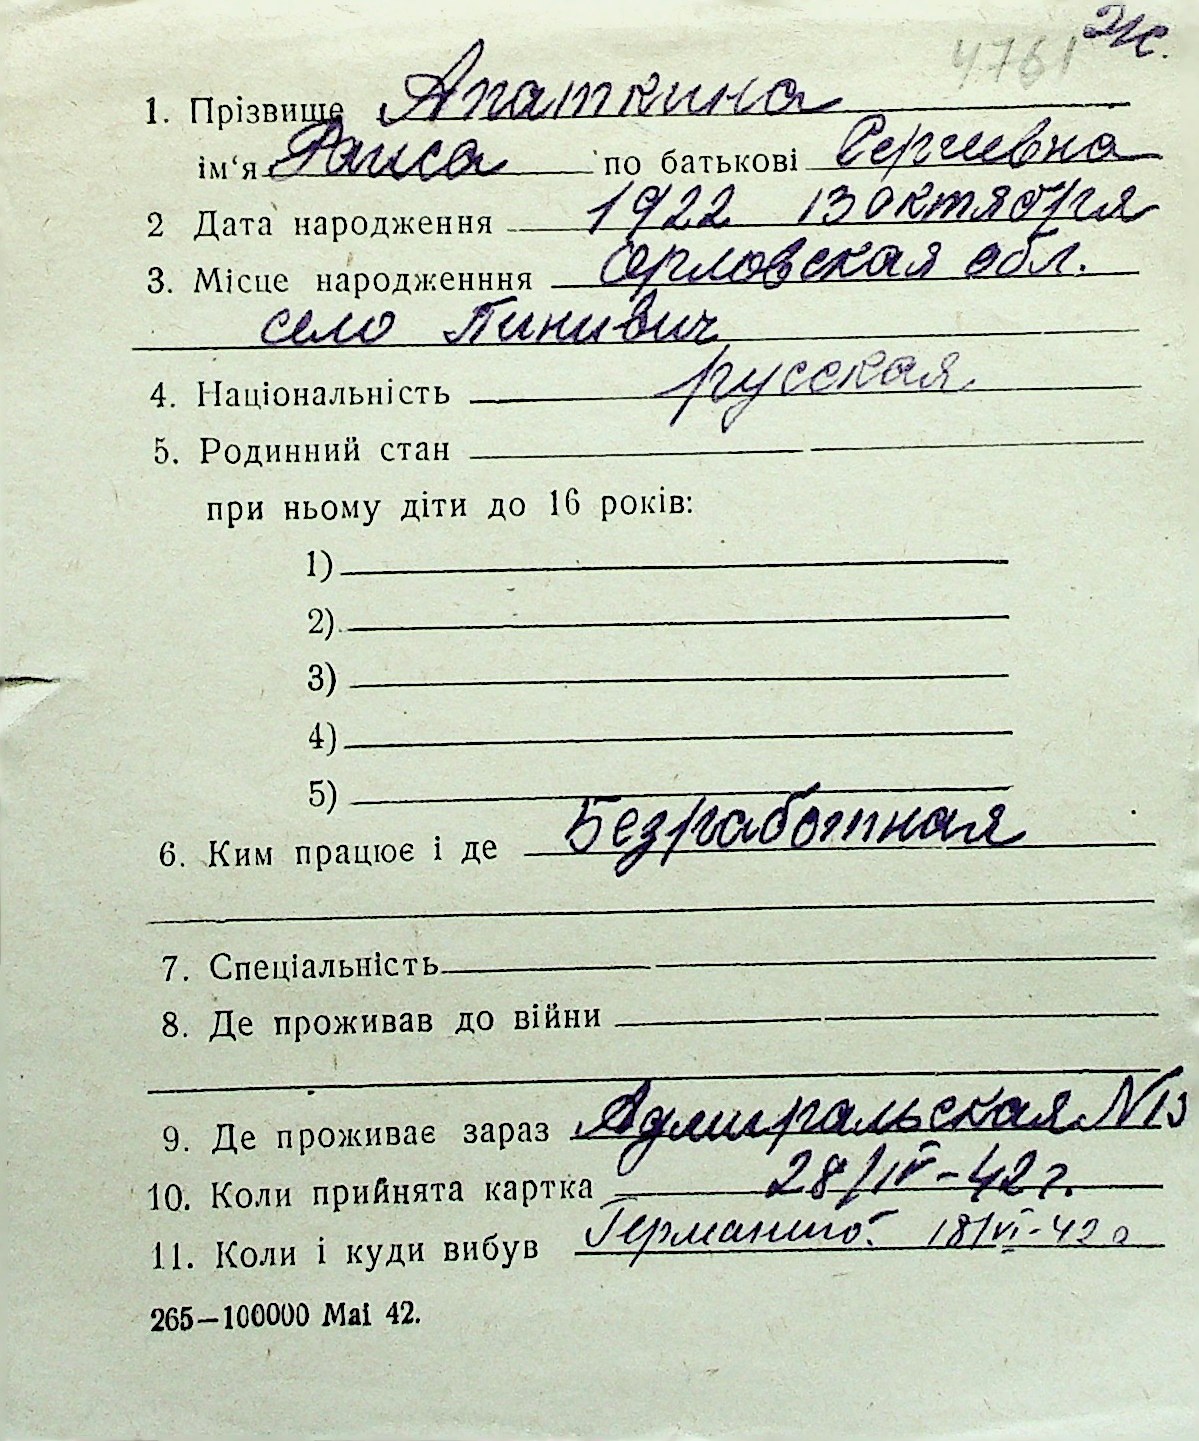 4761 Ж.
1. Прізвище Апаткина
ім'я Раиса по батькові Сергиевна
2 Дата народження 1922 13 октября
3. Місце народженння Орловская обл.
село Пинивич
4. Національність русская
5. Родинний стан
при ньому діти до 16 років:
1)
2)
3)
4)
5)
6. Ким працює і де Безработная
7. Спеціальність
8. Де проживав до війни
9. Де проживає зараз Адмиральская N 13
10. Коли прийнята картка 28/IV-42 г.
11. Коли і куди вибув Германию 18/VI-42 г
265—100000 Mai 42.